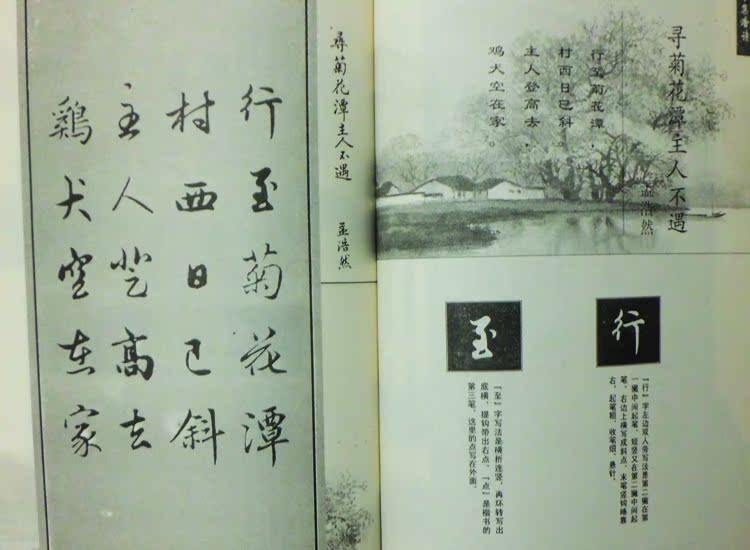 寻菊花潭主人不遇
孟浩然
行至菊花潭，
村西日已斜。
主人登高去，
鸡犬空在家。
行
『行』字左边双人旁写法是第二撇在第
一撇中间起笔，短竖又在第二撇中间起
笔。右边上横写成斜点，末笔竖钩略靠
右，起笔粗，收笔细，悬针。
至
『至』字写法是横折连竖，再环转写出
底横，提钩带出右点。『点』是楷书的
第三笔，这里的点写在外面。
尋菊花潭主人不遇
孟浩然
行至菊花潭
村西日已斜
主人登高去
鷄犬空在家